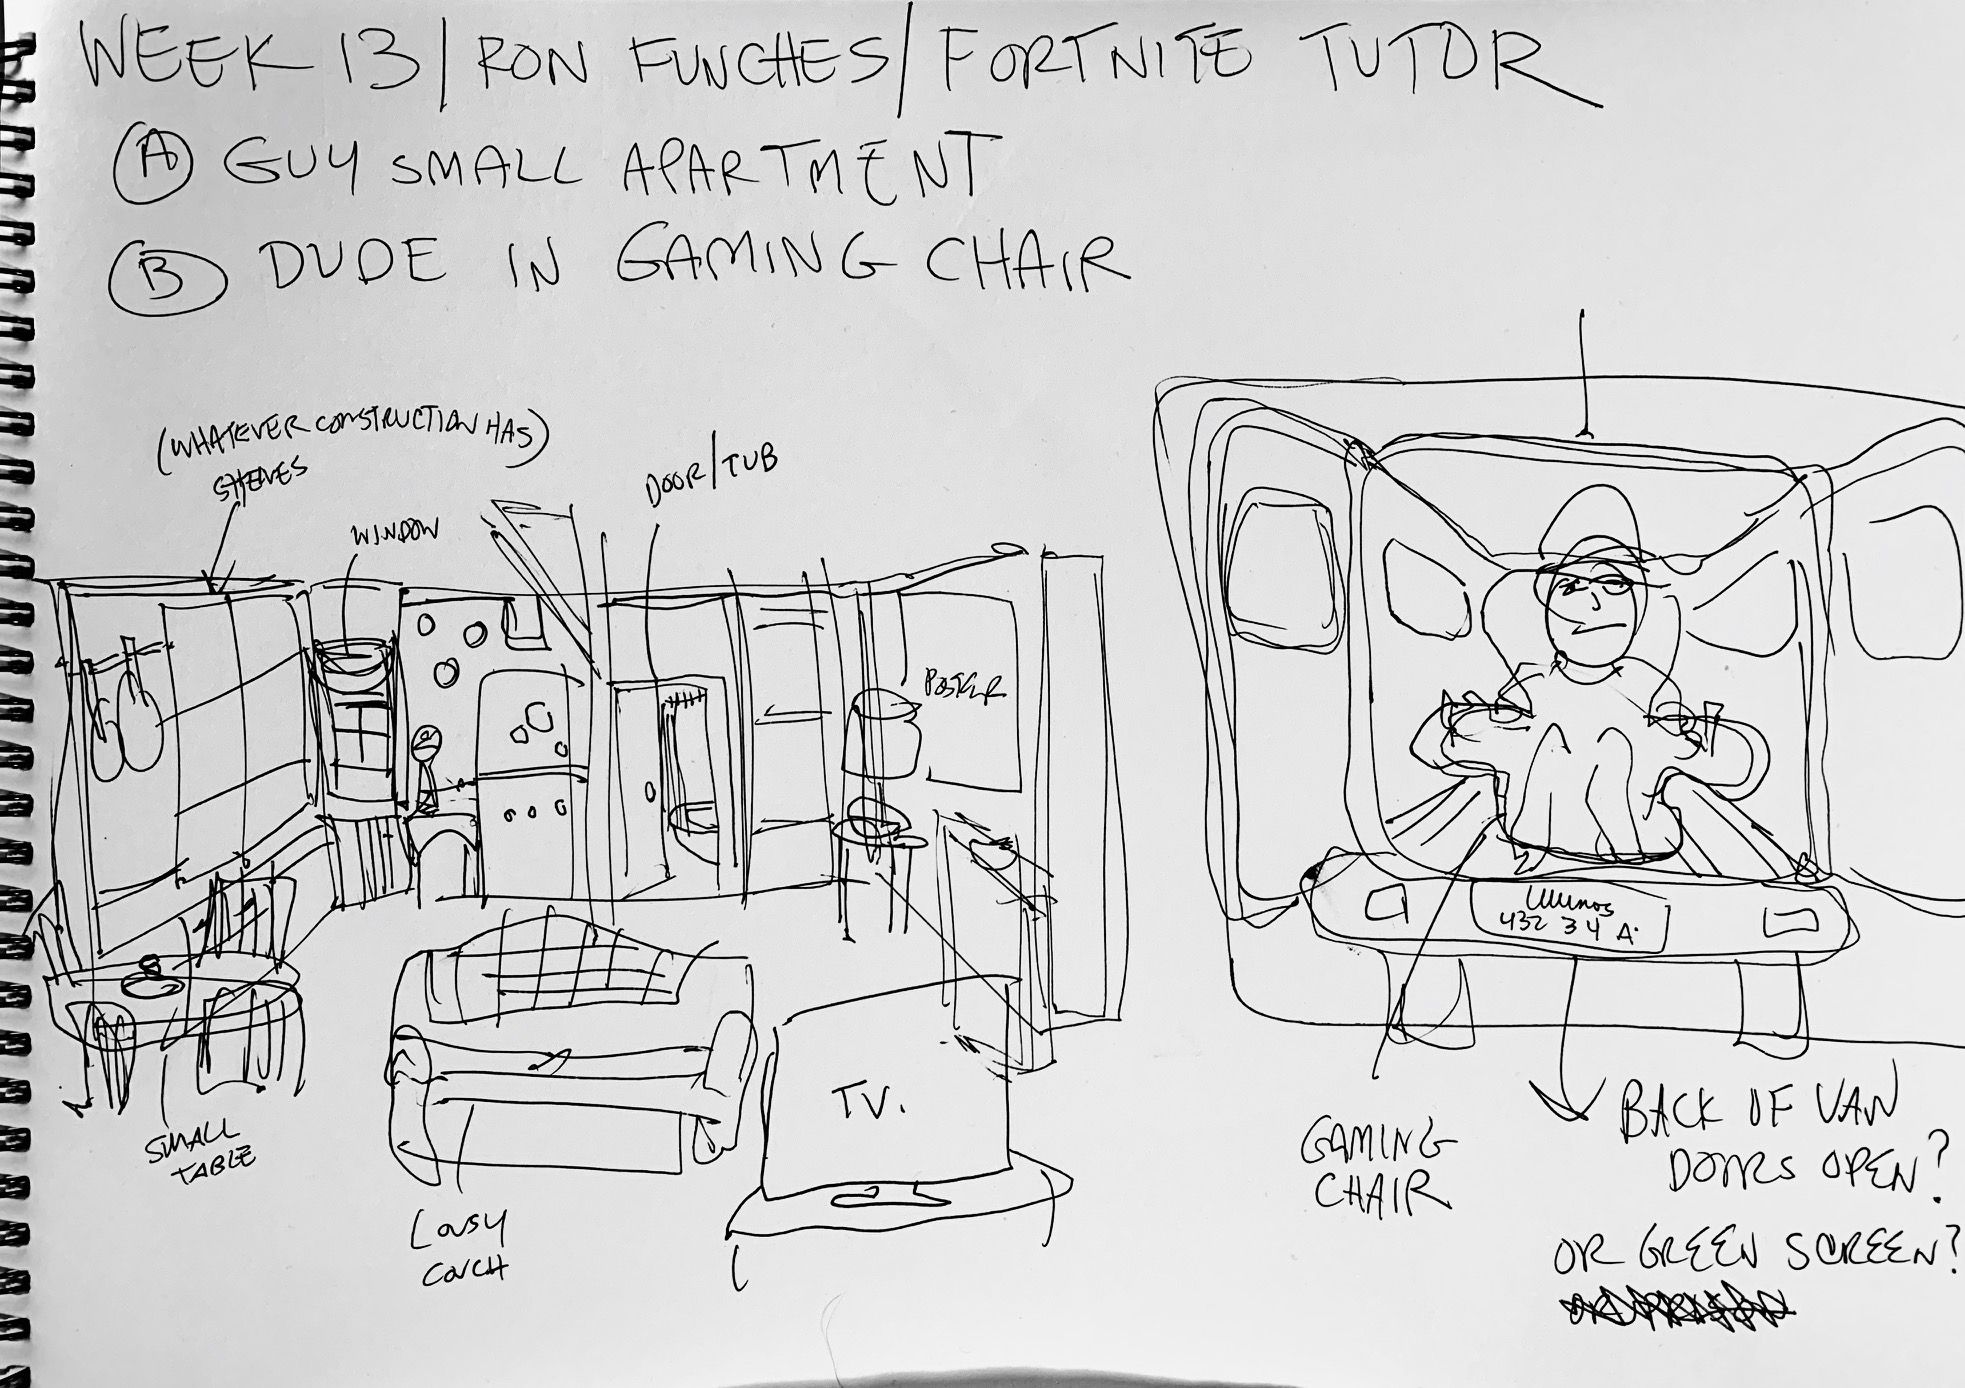 WEEK 13 / RON FUNCHES / FORTNITE TUTOR
(A) GUY SMALL APARTMENT
(B) DUDE IN GAMING CHAIR
(WHATEVER CONSTRUCTION HAS)
SHELVES
WINDOW
DOOR/TUB
POSTER
SMALL
TABLE
LOUSY
COUCH
TV.
432 34 A
GAMING
CHAIR
BACK OF VAN
DOORS OPEN?
OR GREEN SCREEN?